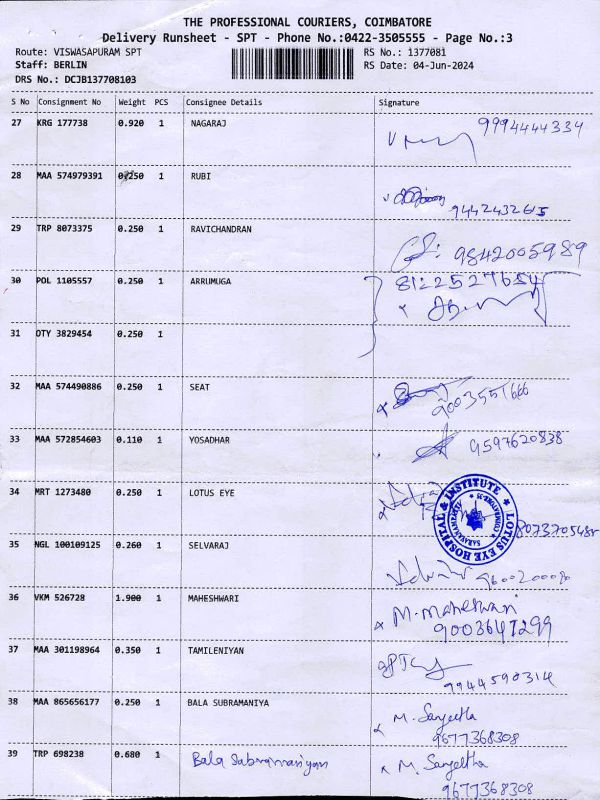 THE PROFESSIONAL COURIERS, COIMBATORE
Delivery Runsheet - SPT - Phone No.:0422-3505555 - Page No.:3
Route: VISWASAPURAM SPT RS No.: 1377081
Staff: BERLIN RS Date: 04-Jun-2024
DRS No.: DCJB137708103
S No Consignment No Weight PCS Consignee Details Signature
27 KRG 177738 0.920 1 NAGARAJ 9994444334
28 MAA 574979391 0.250 1 RUBI
9442432615
29 TRP 8073375 0.250 1 RAVICHANDRAN
9842005989
30 POL 1105557 0.250 1 ARRUMUGA 8122527684
31 OTY 3829454 0.250 1
32 MAA 574490886 0.250 1 SEAT
9003551666
33 MAA 572854603 0.110 1 YOSADHAR 9597620838
34 MRT 1273480 0.250 1 LOTUS EYE
LOTUS EYE HOSPITAL & INSTITUTE
35 NGL 100109125 0.260 1 SELVARAJ
36 VKM 526728 1.900 1 MAHESHWARI M. Maheswari
9003647299
37 MAA 301198964 0.350 1 TAMILENIYAN
9944590314
38 MAA 865656177 0.250 1 BALA SUBRAMANIYA M. Sangeetha
9677368308
39 TRP 698238 0.680 1 Bala Subramaniyan M. Sangeetha
9677368308